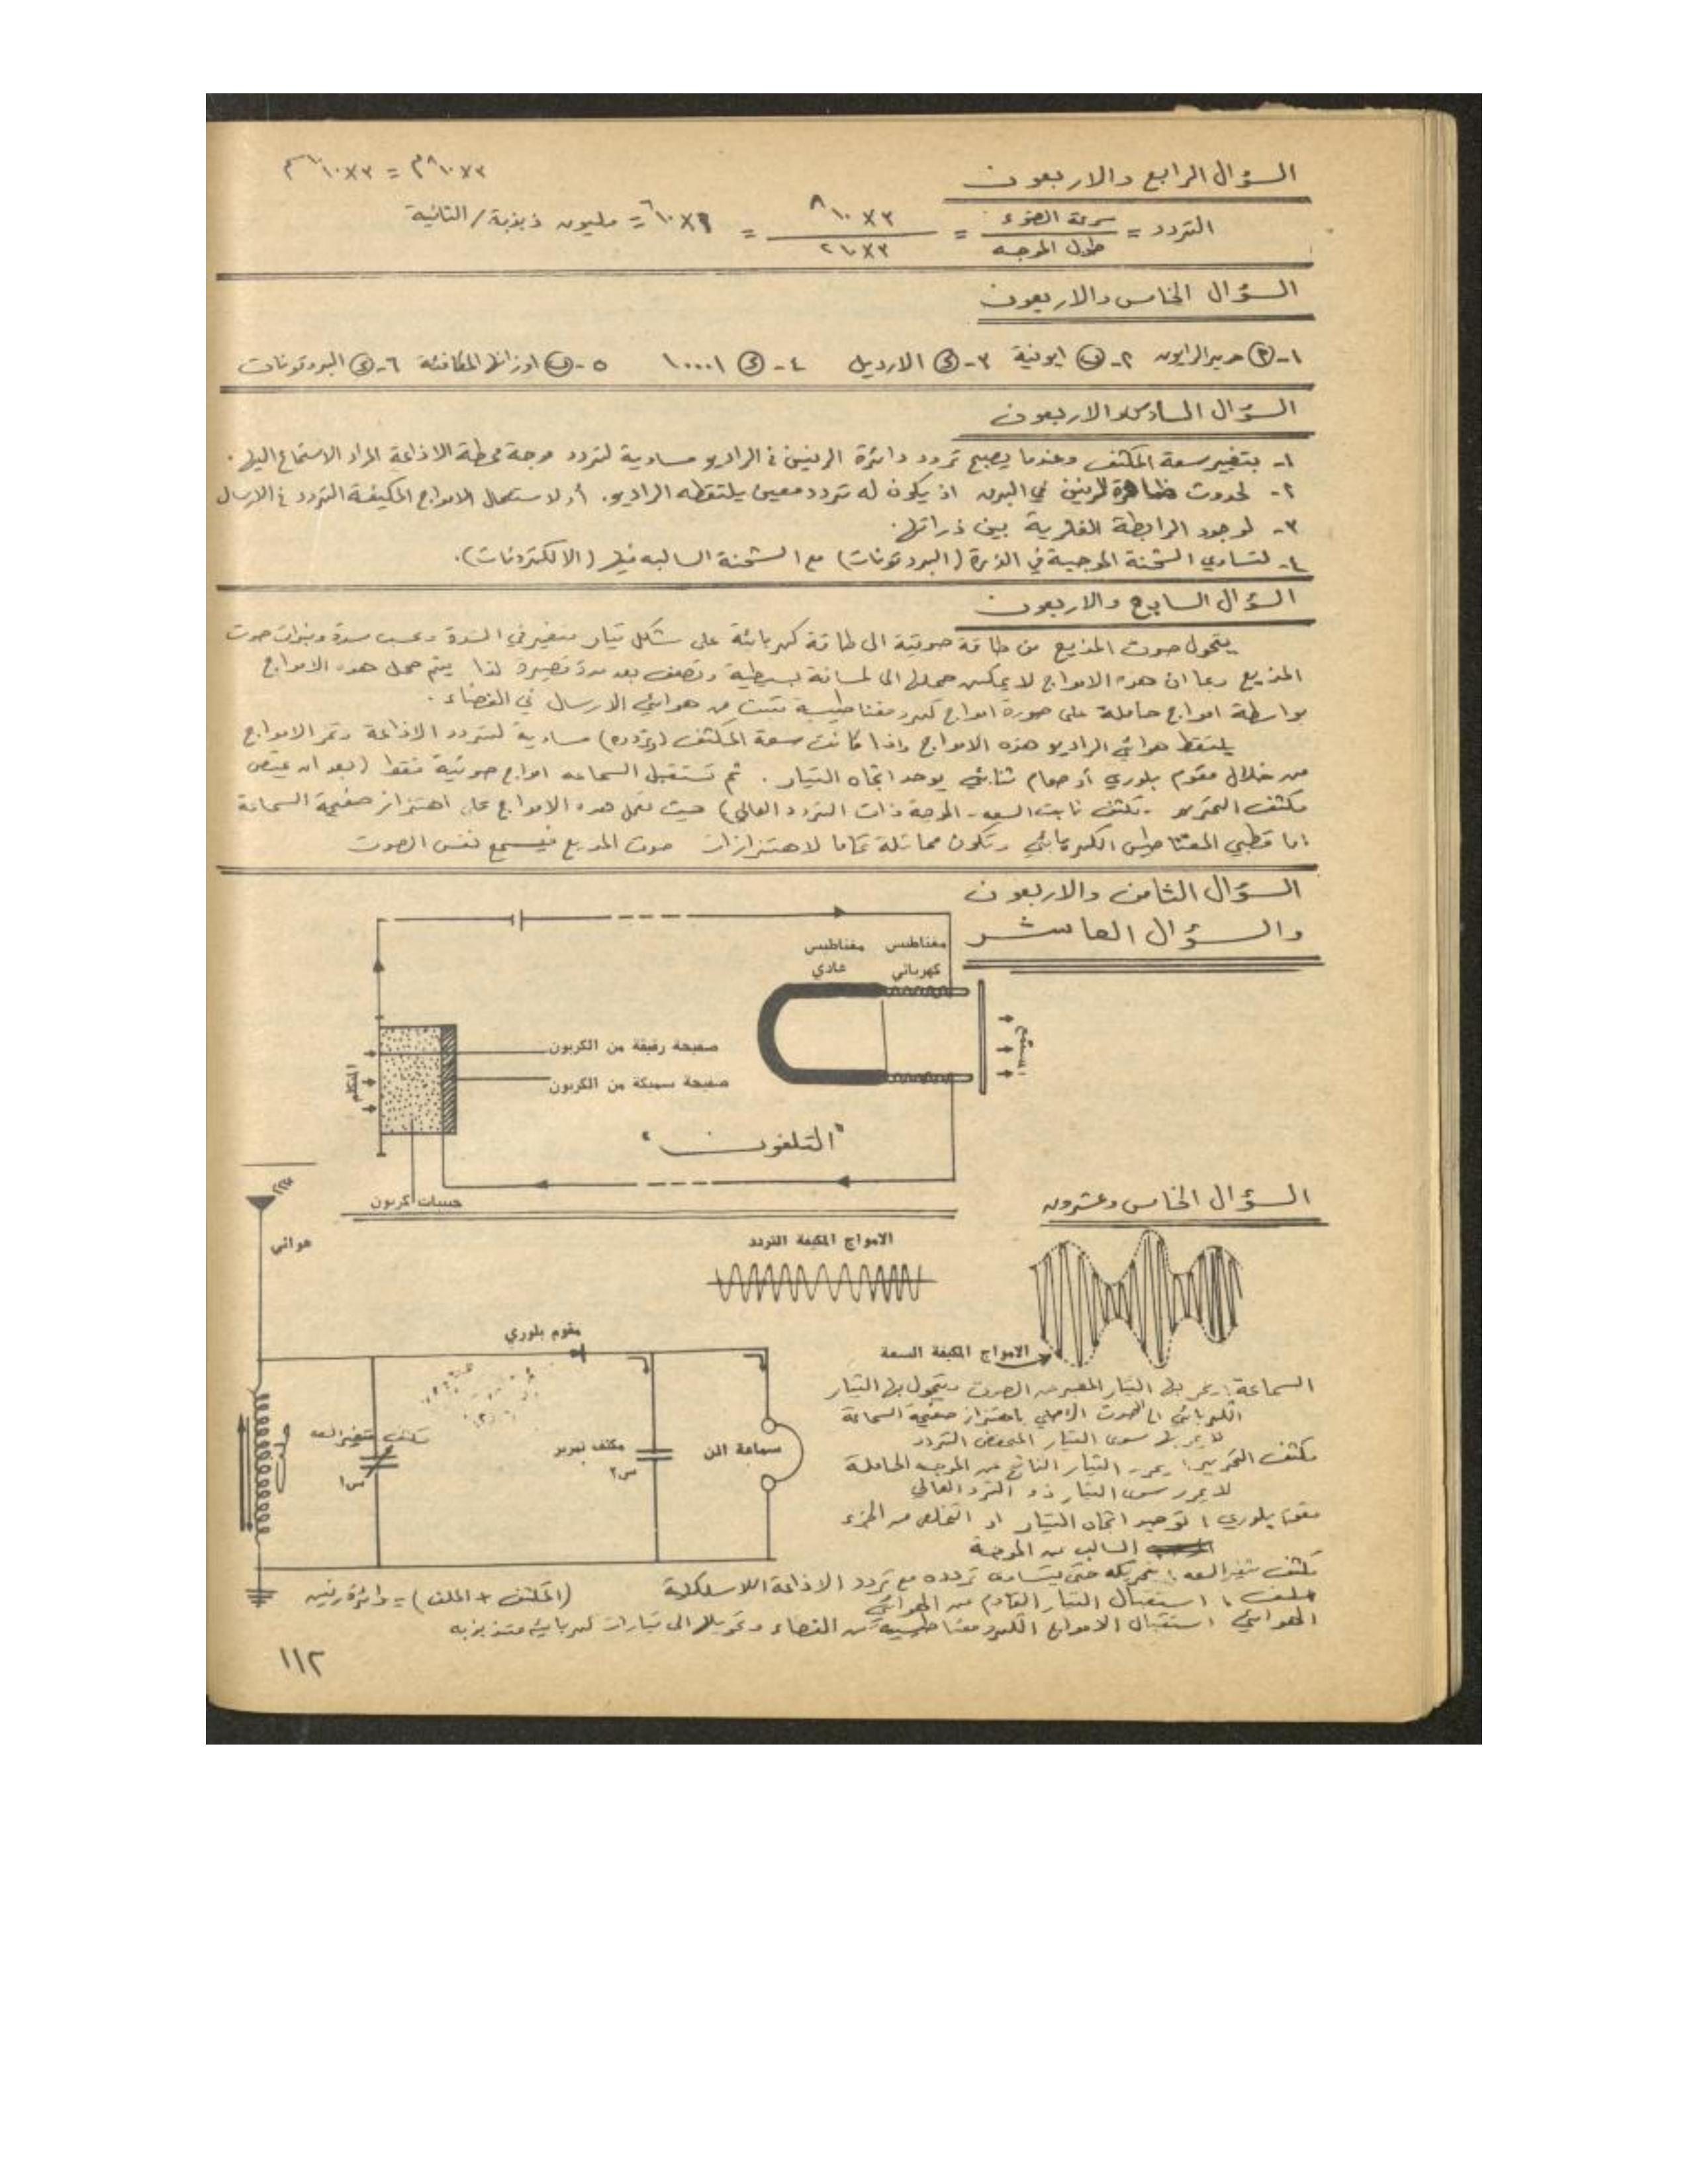 السؤال الرابع والاربعون
٣×١٠^٨ م = ٣×١٠^١٠ سم
التردد = سرعة الضوء / طول الموجه = ٣×١٠^٨ / ٣×١٠^٢ = ١×١٠^٦ = مليون ذبذبة/الثانية
السؤال الخامس والاربعون
١- (أ) حرير الرايون ٢- (ب) ايونية ٣- (ج) الارديل ٤- (ج) ١٠٠٠١ ٥- (ب) اوزانها المكافئة ٦- (ج) البروتونات
السؤال السادس والاربعون
١- بتغيير سعة المكثف وعندما يصبح تردد دائرة الرنين في الراديو مساوية لتردد موجة محطة الاذاعة المراد الاستماع اليها.
٢- لحدوث ظاهرة الرنين في البرد اذ يكون له تردد معين يلتقطه الراديو. أو لاستعمال الامواج المكيفة التردد في الارسال
٣- لوجود الرابطة الفلزية بين ذراتها.
٤- لتساوي الشحنة الموجبة في الذرة (البروتونات) مع الشحنة السالبه فيها (الالكترونات).
السؤال السابع والاربعون
يتحول صوت المذيع من طاقة صوتية الى طاقة كهربائية على شكل تيار متغير في الشدة وحسب شدة ونبرات صوت
المذيع وبما ان هذه الامواج لا يمكن حملها الى لمسافة بسيطة وتضعف بعد مدة قصيرة لذا يتم حمل هذه الامواج
بواسطة امواج حاملة على صورة امواج كهرومغناطيسية تبث من هوائي الارسال في الفضاء.
يلتقط هوائي الراديو هذه الامواج واذا كانت سعة المكثف (وتردده) مساوية لتردد الاذاعة وتمر الامواج
من خلال مقوم بلوري أو صمام ثنائي يوحد اتجاه التيار. ثم تستقبل السماعه امواج صوتية فقط (بعد ان يمتص
مكثف التمرير - مكثف ثابت السعه - الموجة ذات التردد العالي) حيث تعمل هذه الامواج على اهتزاز صفيحة السماعة
اما قطبي المغناطيس الكهربائي وتكون مماثلة تماما لاهتزازات صوت المذيع فيسمع نفس الصوت
السؤال الثامن والاربعون
والسؤال العاشر
مغناطيس كهربائي
مغناطيس عادي
المستمع
صفيحة رقيقة من الكربون
صفيحة سميكة من الكربون
المتكلم
"التلفون"
حبيبات كربون
السؤال الخامس وعشرون
الامواج المكيفة التردد
الامواج المكيفة السعة
هوائي
مقوم بلوري
مكثف متغير السعه
س١
مكثف تمرير
س٢
سماعة الاذن
ملف
السماعة: يمر بها التيار المعبر عن الصوت ويتحول بها التيار
الكهربائي الى الصوت الاصلي باهتزاز صفيحة السماعة
لا يمر بها سوى التيار المنخفض التردد
مكثف التمرير: يمرر التيار الناتج عن الموجه الحاملة
لا يمرر سوى التيار ذو التردد العالي
مقوم بلوري: توحيد اتجاه التيار او التخلص من الجزء
السالب من الموجة
مكثف متغير السعه: بتحريكه حتى يتساوى تردده مع تردد الاذاعة اللاسلكية
ملف: استقبال التيار القادم من الهوائي
(المكثف + الملف) = دائرة رنين
الهوائي: استقبال الامواج الكهرومغناطيسية من الفضاء وتحويلها الى تيارات كهربائية متذبذبه
١١٢